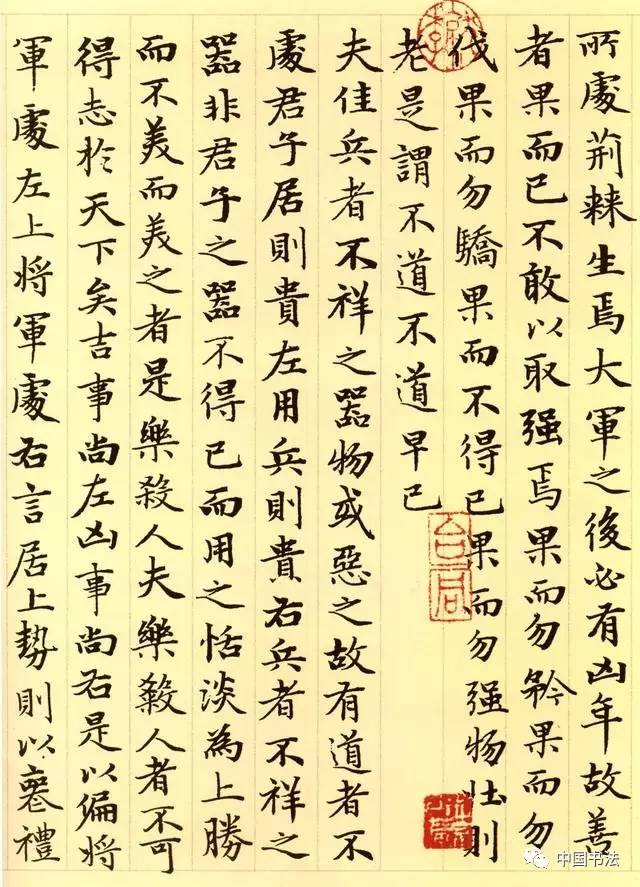 所處荆棘生焉大軍之後必有凶年故善
者果而已不敢以取强焉果而勿矜果而勿
伐果而勿驕果而不得已果而勿强物壯則
老是謂不道不道早已
夫佳兵者不祥之器物或惡之故有道者不
處君子居則貴左用兵則貴右兵者不祥之
器非君子之器不得已而用之恬淡為上勝
而不美而美之者是樂殺人夫樂殺人者不可
得志於天下矣吉事尚左凶事尚右是以偏將
軍處左上將軍處右言居上勢則以喪禮
中国书法